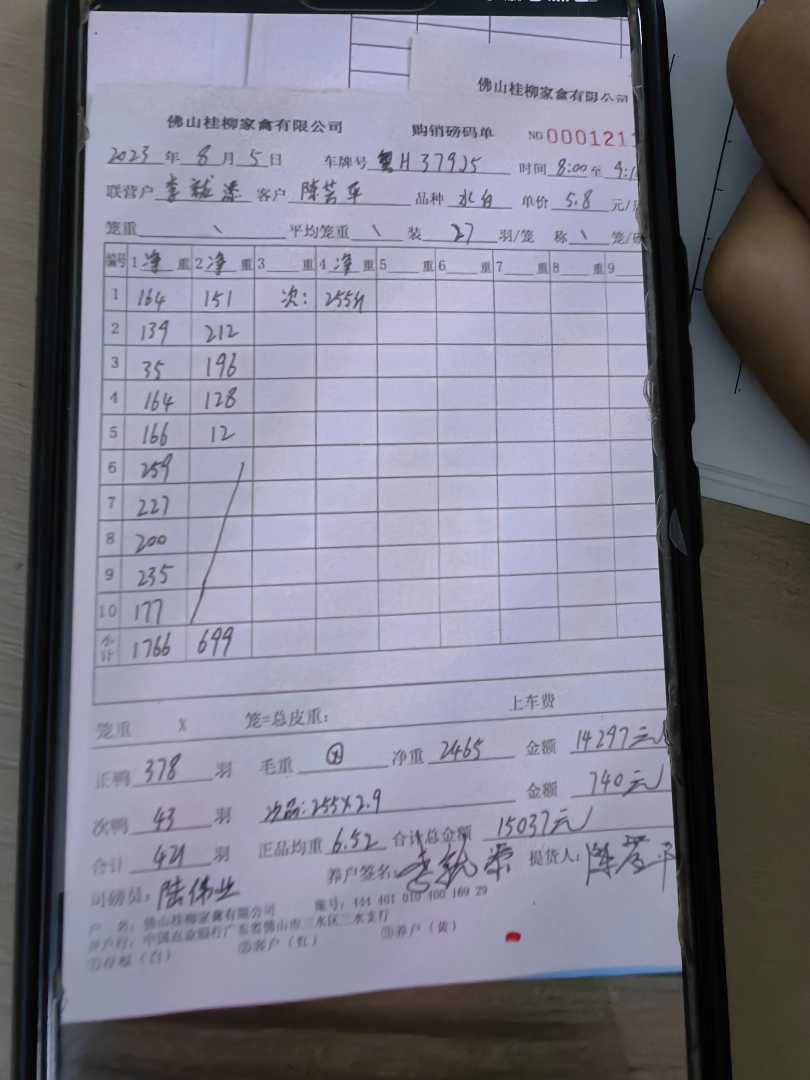 佛山桂柳家禽有限公司
佛山桂柳家禽有限公司 购销磅码单 NO 0001211
2023 年 8 月 5 日 车牌号 粤H 37925 时间 8:00 至 9:1
联营户 李 客户 陈芸平 品种 水白 单价 5.8 元/
笼重 \ 平均笼重 \ 装 27 羽/笼 称 \ 笼/
编号 1 净 重 2 净 重 3 重 4 净 重 5 重 6 重 7 重 8 重 9
1 164 151 次: 255斤
2 139 212
3 35 196
4 164 128
5 166 12
6 259
7 227
8 200
9 235
10 177
小计 1766 699
笼重 X 笼=总皮重: 上车费
正鸭 378 羽 毛重 净重 2465 金额 14297元
次鸭 43 羽 次品:255X2.9 金额 740元
合计 421 羽 正品均重 6.52 合计总金额 15037元
司磅员: 陆伟业 养户签名: 李 荣 提货人: 陈芸平
户 名: 佛山桂柳家禽有限公司 账号: 444 461 010 400 169 29
开户行: 中国农业银行广东省佛山市三水区三水支行
①存根(白) ②客户(红) ③养户(黄)